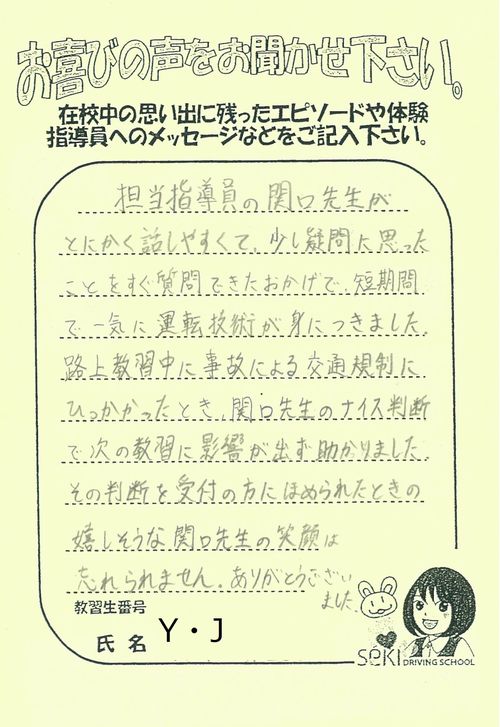 お喜びの声をお聞かせ下さい。
在校中の思い出に残ったエピソードや体験
指導員へのメッセージなどをご記入下さい。
担当指導員の関口先生が
とにかく話しやすくて、少し疑問に思った
ことをすぐ質問できたおかげで、短期間
で一気に運転技術が身につきました。
路上教習中に事故による交通規制に
ひっかかったとき、関口先生のナイス判断
で次の教習に影響が出ず助かりました。
その判断を受付の方にほめられたときの
嬉しそうな関口先生の笑顔は
忘れられません。ありがとうござい
ました。
教習生番号
氏名 Y・J
SEKI DRIVING SCHOOL